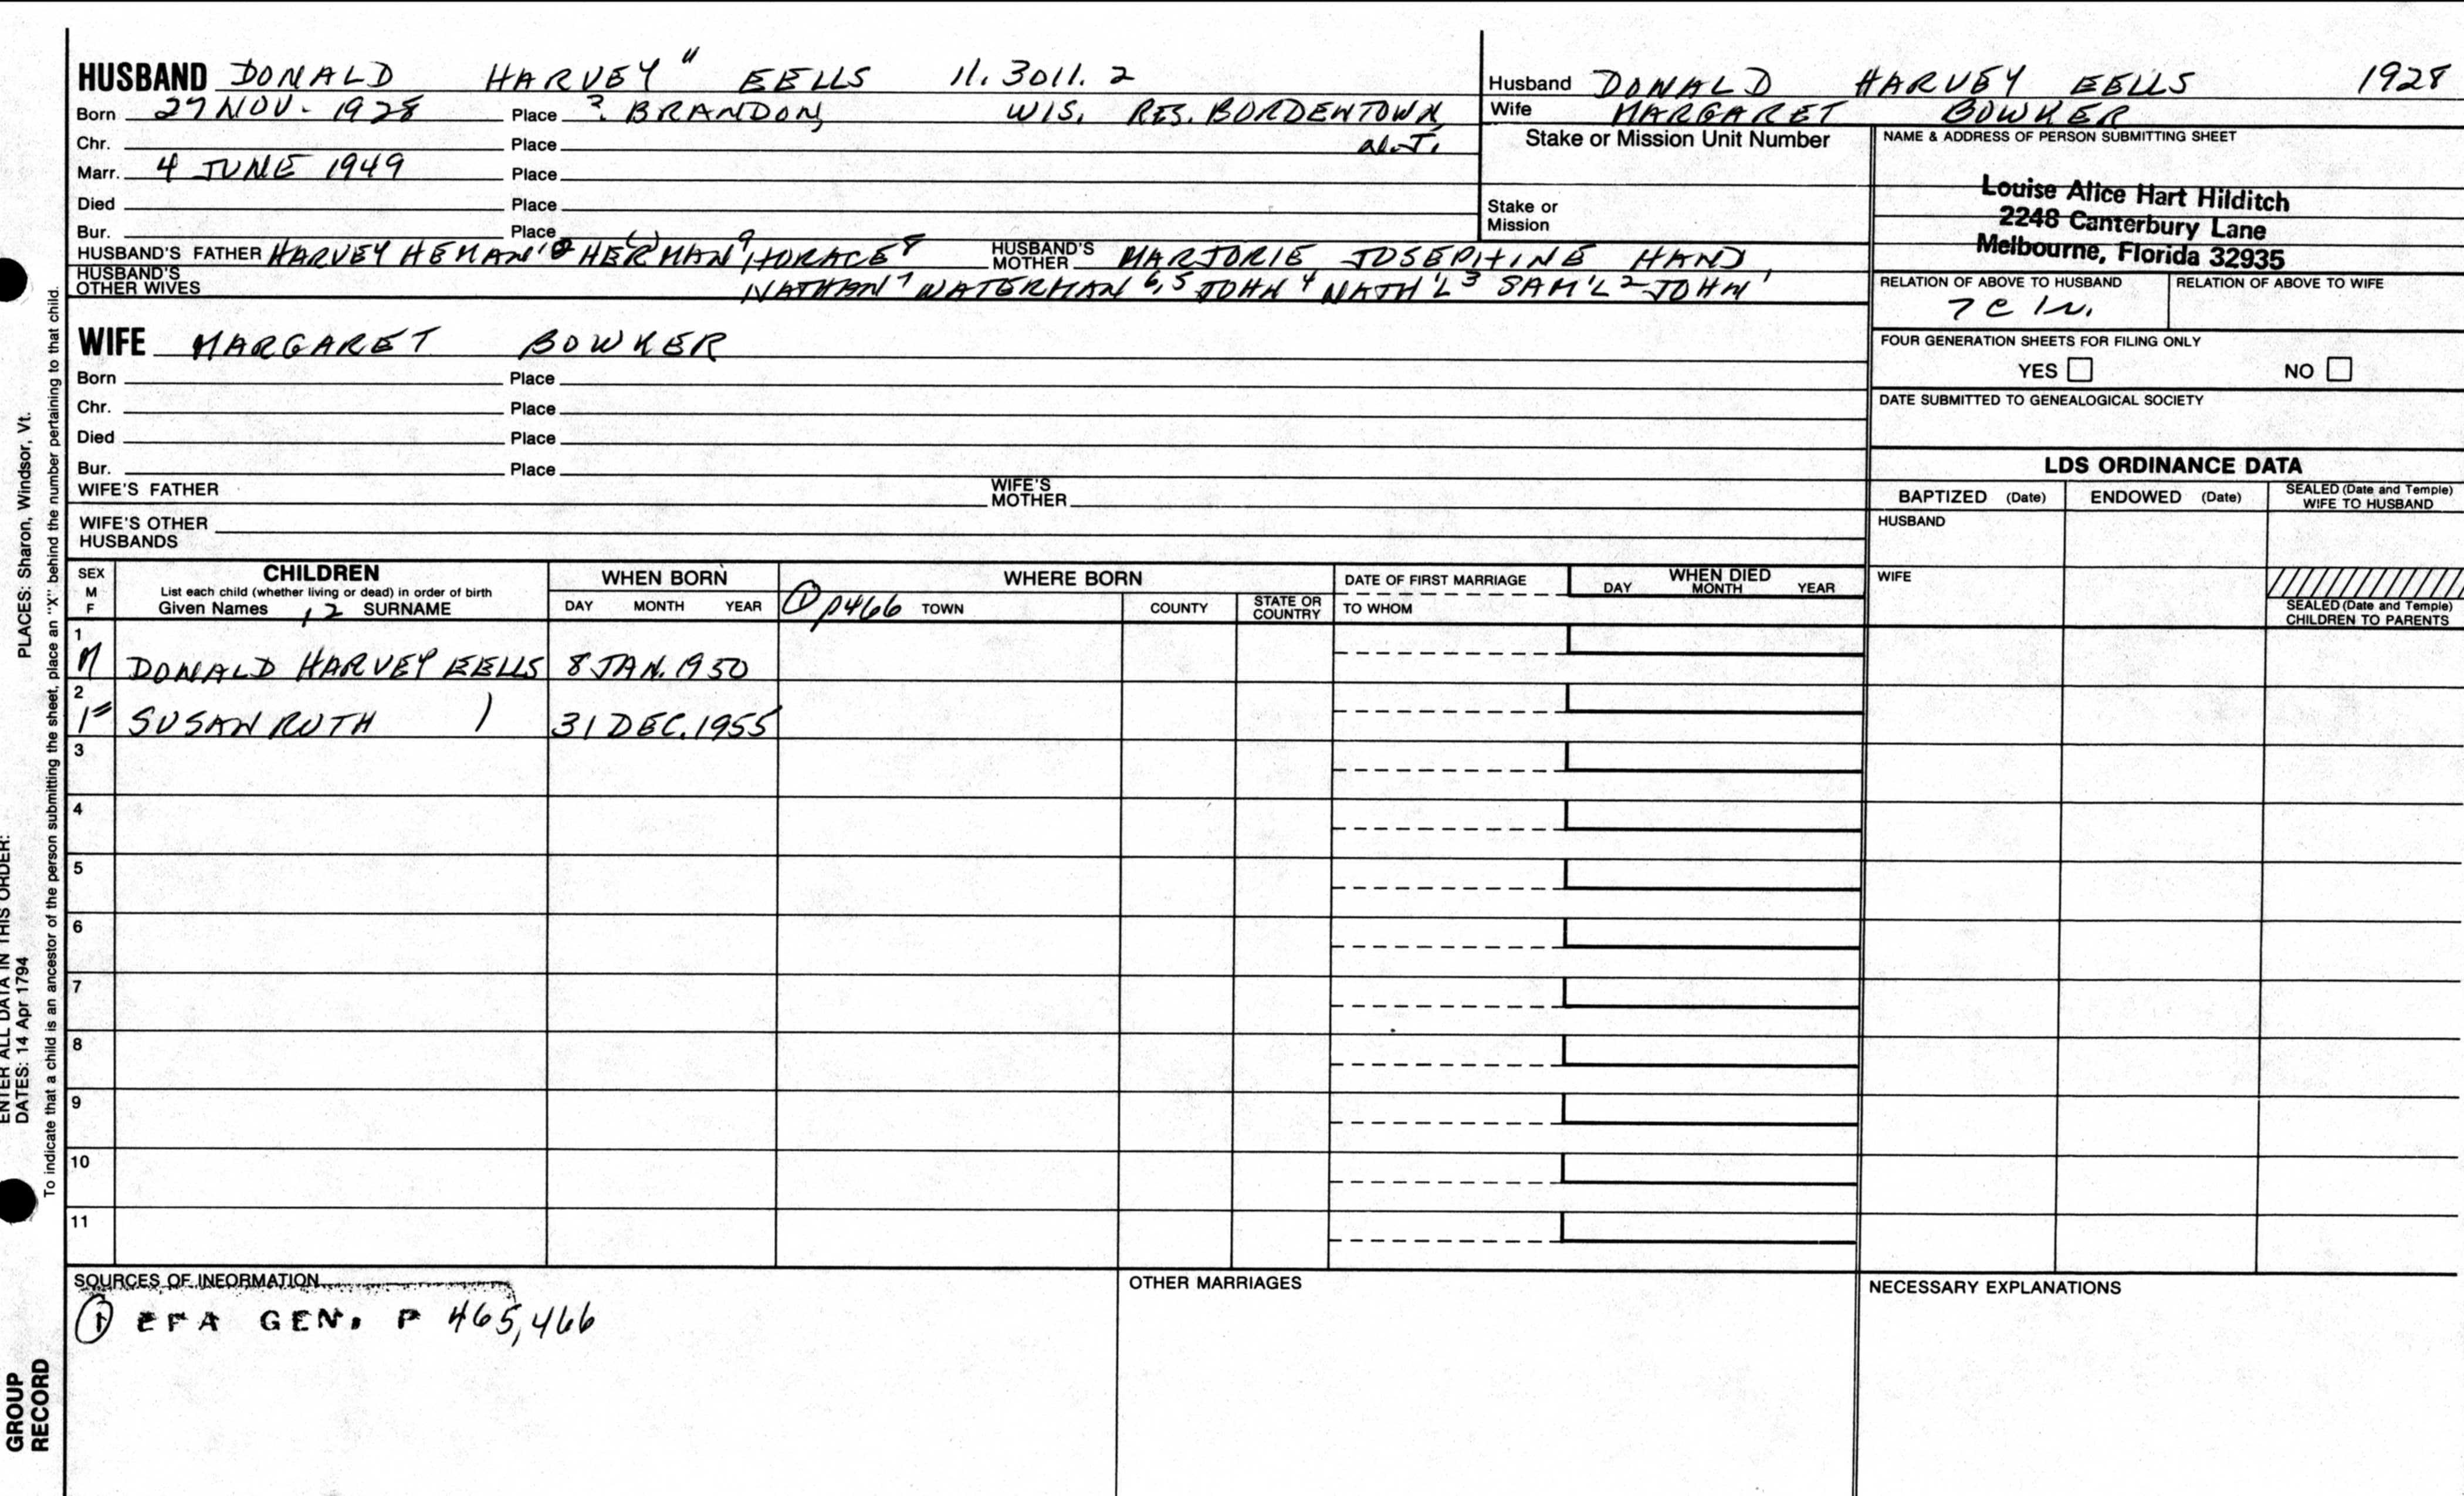 HUSBAND DONALD HARVEY 11 EELLS 11.3011.2
Born 27 NOV. 1928 Place ? BRANDON, WIS. RES. BORDENTOWN,
Chr. Place N.J.
Marr. 4 JUNE 1949 Place
Died Place
Bur. Place
HUSBAND'S FATHER HARVEY HEMAN 10 HERMAN 9 HORACE 8 HUSBAND'S MOTHER MARJORIE JOSEPHINE HAND
HUSBAND'S OTHER WIVES NATHAN 7 WATERMAN 6,5 JOHN 4 NATH'L 3 SAM'L 2 JOHN 1
WIFE MARGARET BOWKER
Born Place
Chr. Place
Died Place
Bur. Place
WIFE'S FATHER WIFE'S MOTHER
WIFE'S OTHER HUSBANDS
Husband DONALD HARVEY EELLS 1928
Wife MARGARET BOWKER
Stake or Mission Unit Number
Stake or Mission
NAME & ADDRESS OF PERSON SUBMITTING SHEET
Louise Alice Hart Hilditch
2248 Canterbury Lane
Melbourne, Florida 32935
RELATION OF ABOVE TO HUSBAND RELATION OF ABOVE TO WIFE
7C
FOUR GENERATION SHEETS FOR FILING ONLY
YES NO
DATE SUBMITTED TO GENEALOGICAL SOCIETY
LDS ORDINANCE DATA
BAPTIZED (Date) ENDOWED (Date) SEALED (Date and Temple) WIFE TO HUSBAND
HUSBAND
WIFE
SEALED (Date and Temple) CHILDREN TO PARENTS
SEX M F
CHILDREN
List each child (whether living or dead) in order of birth
Given Names 12 SURNAME
WHEN BORN
DAY MONTH YEAR
WHERE BORN
① p466 TOWN COUNTY STATE OR COUNTRY
DATE OF FIRST MARRIAGE
TO WHOM
WHEN DIED
DAY MONTH YEAR
1
M DONALD HARVEY EELLS 8 JAN. 1950
2
F SUSAN RUTH ) 31 DEC. 1955
3
4
5
6
7
8
9
10
11
SOURCES OF INFORMATION
① EFA GEN. P 465,466
OTHER MARRIAGES
NECESSARY EXPLANATIONS
ENTER ALL DATA IN THIS ORDER:
DATES: 14 Apr 1794 PLACES: Sharon, Windsor, Vt.
To indicate that a child is an ancestor of the person submitting the sheet, place an "X" behind the number pertaining to that child.
GROUP
RECORD